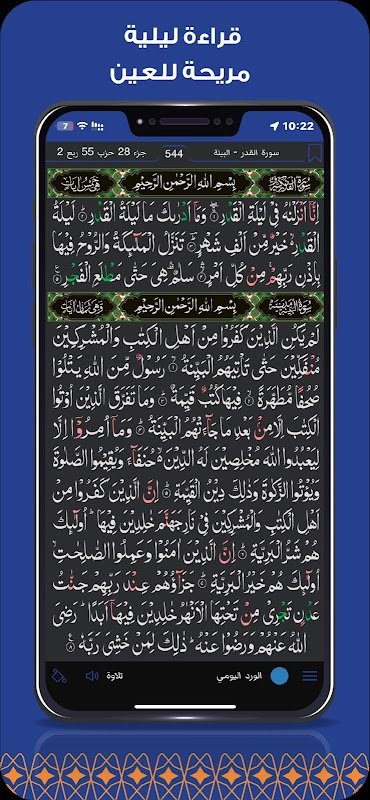 قراءة ليلية
مريحة للعين
10:22
7
سورة القدر - البينة
544
جزء 28 حزب 55 ربع 2
بِسْمِ اللهِ الرَّحْمٰنِ الرَّحِيْمِ
اِنَّآ اَنْزَلْنٰهُ فِيْ لَيْلَةِ الْقَدْرِ ۝ وَمَآ اَدْرٰىكَ مَا لَيْلَةُ الْقَدْرِ ۝ لَيْلَةُ
الْقَدْرِ خَيْرٌ مِّنْ اَلْفِ شَهْرٍ ۝ تَنَزَّلُ الْمَلٰٓئِكَةُ وَالرُّوْحُ فِيْهَا
بِاِذْنِ رَبِّهِمْ مِنْ كُلِّ اَمْرٍ ۝ سَلٰمٌ هِيَ حَتّٰى مَطْلَعِ الْفَجْرِ ۝
بِسْمِ اللهِ الرَّحْمٰنِ الرَّحِيْمِ
لَمْ يَكُنِ الَّذِيْنَ كَفَرُوْا مِنْ اَهْلِ الْكِتٰبِ وَالْمُشْرِكِيْنَ
مُنْفَكِّيْنَ حَتّٰى تَأْتِيَهُمُ الْبَيِّنَةُ ۝ رَسُوْلٌ مِّنَ اللهِ يَتْلُوْا
صُحُفًا مُّطَهَّرَةً ۝ فِيْهَا كُتُبٌ قَيِّمَةٌ ۝ وَمَا تَفَرَّقَ الَّذِيْنَ اُوْتُوا
الْكِتٰبَ اِلَّا مِنْ بَعْدِ مَا جَآءَتْهُمُ الْبَيِّنَةُ ۝ وَمَآ اُمِرُوْٓا اِلَّا
لِيَعْبُدُوا اللهَ مُخْلِصِيْنَ لَهُ الدِّيْنَ حُنَفَآءَ وَيُقِيْمُوا الصَّلٰوةَ
وَيُؤْتُوا الزَّكٰوةَ وَذٰلِكَ دِيْنُ الْقَيِّمَةِ ۝ اِنَّ الَّذِيْنَ كَفَرُوْا مِنْ
اَهْلِ الْكِتٰبِ وَالْمُشْرِكِيْنَ فِيْ نَارِ جَهَنَّمَ خٰلِدِيْنَ فِيْهَا اُولٰٓئِكَ
هُمْ شَرُّ الْبَرِيَّةِ ۝ اِنَّ الَّذِيْنَ اٰمَنُوْا وَعَمِلُوا الصّٰلِحٰتِ
اُولٰٓئِكَ هُمْ خَيْرُ الْبَرِيَّةِ ۝ جَزَآؤُهُمْ عِنْدَ رَبِّهِمْ جَنّٰتُ
عَدْنٍ تَجْرِيْ مِنْ تَحْتِهَا الْاَنْهٰرُ خٰلِدِيْنَ فِيْهَآ اَبَدًا رَضِيَ
اللهُ عَنْهُمْ وَرَضُوْا عَنْهُ ذٰلِكَ لِمَنْ خَشِيَ رَبَّهٗ ۝
الورد اليومي
تلاوة